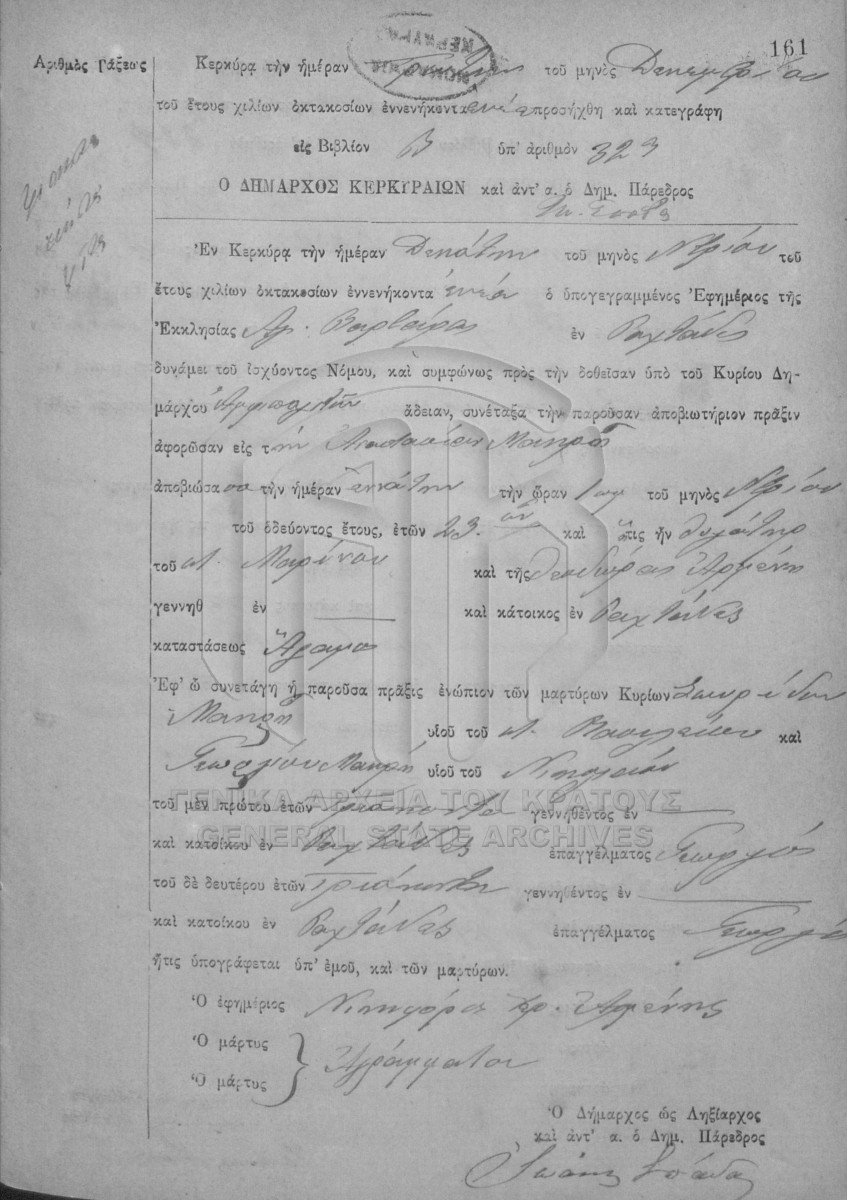 161
Ἀριθμὸς Τάξεως
Κερκύρᾳ τὴν ἡμέραν τοῦ μηνὸς Δεκεμβρίου
τοῦ ἔτους χιλίων ὀκτακοσίων ἐννενήκοντα ἐννέα προσήχθη καὶ κατεγράφη
εἰς Βιβλίον Β ὑπ' ἀριθμὸν 323
Ο ΔΗΜΑΡΧΟΣ ΚΕΡΚΥΡΑΙΩΝ καὶ ἀντ' α. ὁ Δημ. Πάρεδρος
Ἐν Κερκύρᾳ τὴν ἡμέραν Δεκάτην τοῦ μηνὸς Ν/βρίου τοῦ
ἔτους χιλίων ὀκτακοσίων ἐννενήκοντα ἐννέα ὁ ὑπογεγραμμένος Ἐφημέριος τῆς
Ἐκκλησίας Ἁγ. Βαρβάρας ἐν Ραχτάδες
δυνάμει τοῦ ἰσχύοντος Νόμου, καὶ συμφώνως πρὸς τὴν δοθεῖσαν ὑπὸ τοῦ Κυρίου Δη-
μάρχου ἄδειαν, συνέταξα τὴν παροῦσαν ἀποβιωτήριον πρᾶξιν
ἀφορῶσαν εἰς τὴν Ἀναστασίαν Μακρῆ
ἀποβιώσασα τὴν ἡμέραν ἐννάτην τὴν ὥραν 1 μμ τοῦ μηνὸς Ν/βρίου
τοῦ ὁδεύοντος ἔτους, ἐτῶν 23 καὶ ἥτις ἦν θυγάτηρ
τοῦ Μαρίνου καὶ τῆς Θεοδώρας Ἀρμένη
γεννηθ ἐν καὶ κάτοικος ἐν Ραχτάδες
καταστάσεως Ἄγαμος
Ἐφ' ᾧ συνετάγη ἡ παροῦσα πρᾶξις ἐνώπιον τῶν μαρτύρων Κυρίων Σπυρίδων
Μακρῆ υἱοῦ τοῦ Βασιλείου καὶ
Γεωργίου Μακρῆ υἱοῦ τοῦ Νικολάου
ΓΕΝΙΚΑ ΑΡΧΕΙΑ ΤΟΥ ΚΡΑΤΟΥΣ
τοῦ μὲν πρώτου ἐτῶν τριάκοντα γεννηθέντος ἐν
GENERAL STATE ARCHIVES
καὶ κατοίκου ἐν Ραχτάδες ἐπαγγέλματος Γεωργός
τοῦ δὲ δευτέρου ἐτῶν τριάκοντα γεννηθέντος ἐν
καὶ κατοίκου ἐν Ραχτάδες ἐπαγγέλματος Γεωργός
ἥτις ὑπογράφεται ὑπ' ἐμοῦ, καὶ τῶν μαρτύρων.
Ὁ ἐφημέριος Νικηφόρος Ἀρμένης
Ὁ μάρτυς
Ἀγράμματοι
Ὁ μάρτυς
Ὁ Δήμαρχος ὡς Ληξίαρχος
καὶ ἀντ' α. ὁ Δημ. Πάρεδρος